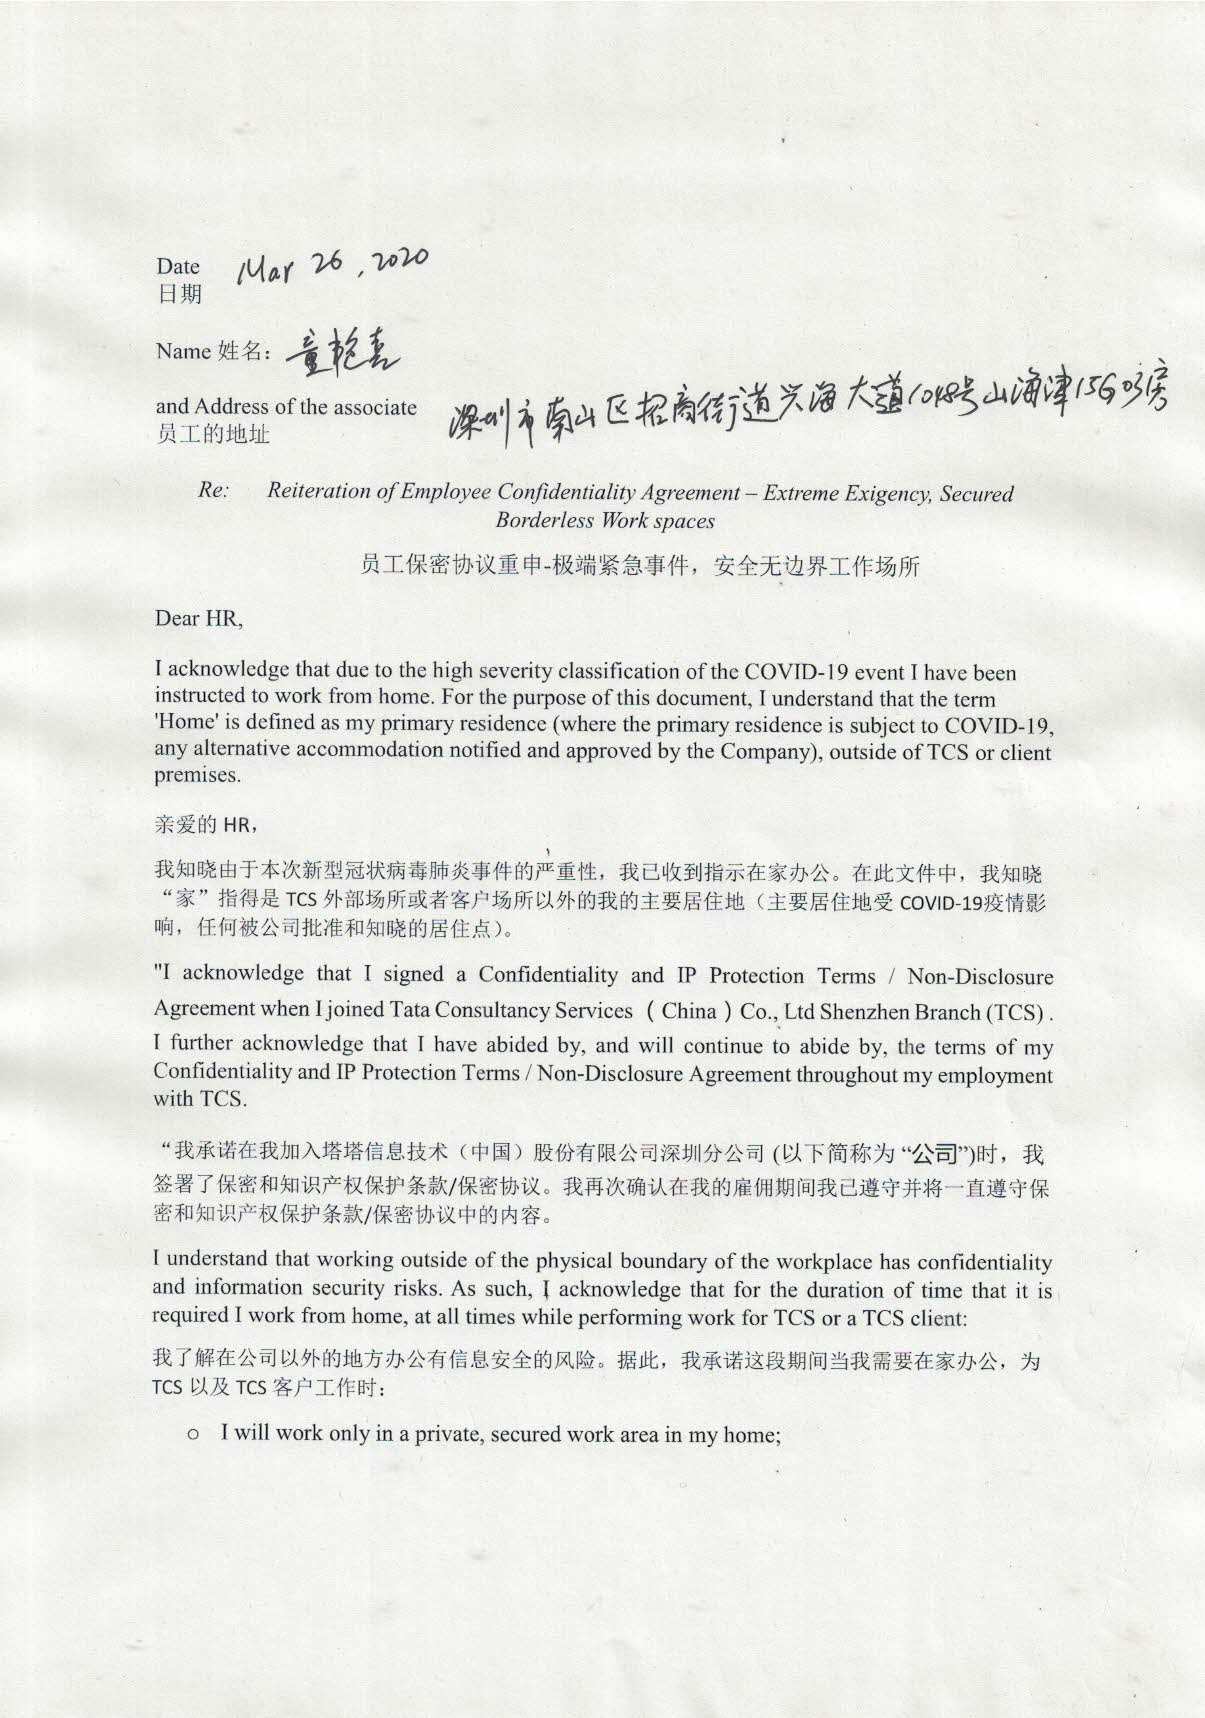 Date Mar 26, 2020
日期
Name 姓名：童艳喜
and Address of the associate 深圳市南山区招商街道兴海大道1048号山海津15G03房
员工的地址
Re: Reiteration of Employee Confidentiality Agreement – Extreme Exigency, Secured
Borderless Work spaces
员工保密协议重申-极端紧急事件，安全无边界工作场所
Dear HR,
I acknowledge that due to the high severity classification of the COVID-19 event I have been
instructed to work from home. For the purpose of this document, I understand that the term
'Home' is defined as my primary residence (where the primary residence is subject to COVID-19,
any alternative accommodation notified and approved by the Company), outside of TCS or client
premises.
亲爱的 HR，
我知晓由于本次新型冠状病毒肺炎事件的严重性，我已收到指示在家办公。在此文件中，我知晓
“家”指得是 TCS 外部场所或者客户场所以外的我的主要居住地（主要居住地受 COVID-19疫情影
响，任何被公司批准和知晓的居住点）。
"I acknowledge that I signed a Confidentiality and IP Protection Terms / Non-Disclosure
Agreement when I joined Tata Consultancy Services （China）Co., Ltd Shenzhen Branch (TCS) .
I further acknowledge that I have abided by, and will continue to abide by, the terms of my
Confidentiality and IP Protection Terms / Non-Disclosure Agreement throughout my employment
with TCS.
“我承诺在我加入塔塔信息技术（中国）股份有限公司深圳分公司 (以下简称为 “公司”)时，我
签署了保密和知识产权保护条款/保密协议。我再次确认在我的雇佣期间我已遵守并将一直遵守保
密和知识产权保护条款/保密协议中的内容。
I understand that working outside of the physical boundary of the workplace has confidentiality
and information security risks. As such, I acknowledge that for the duration of time that it is
required I work from home, at all times while performing work for TCS or a TCS client:
我了解在公司以外的地方办公有信息安全的风险。据此，我承诺这段期间当我需要在家办公，为
TCS 以及 TCS 客户工作时：
o I will work only in a private, secured work area in my home;